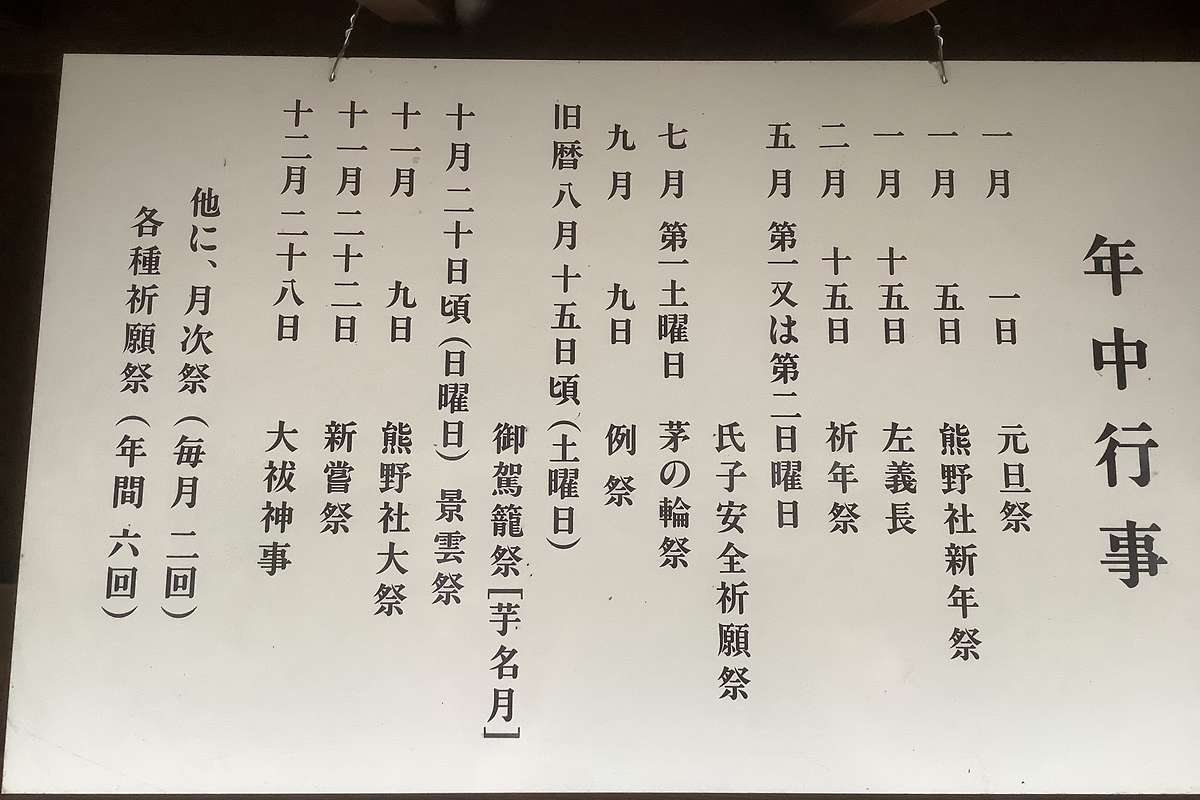 年中行事
一月 一日 元旦祭
一月 五日 熊野社新年祭
一月 十五日 左義長
二月 十五日 祈年祭
五月 第一又は第二日曜日
氏子安全祈願祭
七月 第一土曜日 茅の輪祭
九月 九日 例祭
旧暦八月十五日頃(土曜日)
御駕籠祭[芋名月]
十月二十日頃(日曜日) 景雲祭
十一月 九日 熊野社大祭
十一月二十二日 新嘗祭
十二月二十八日 大祓神事
他に、月次祭(毎月 二回)
各種祈願祭(年間 六回)